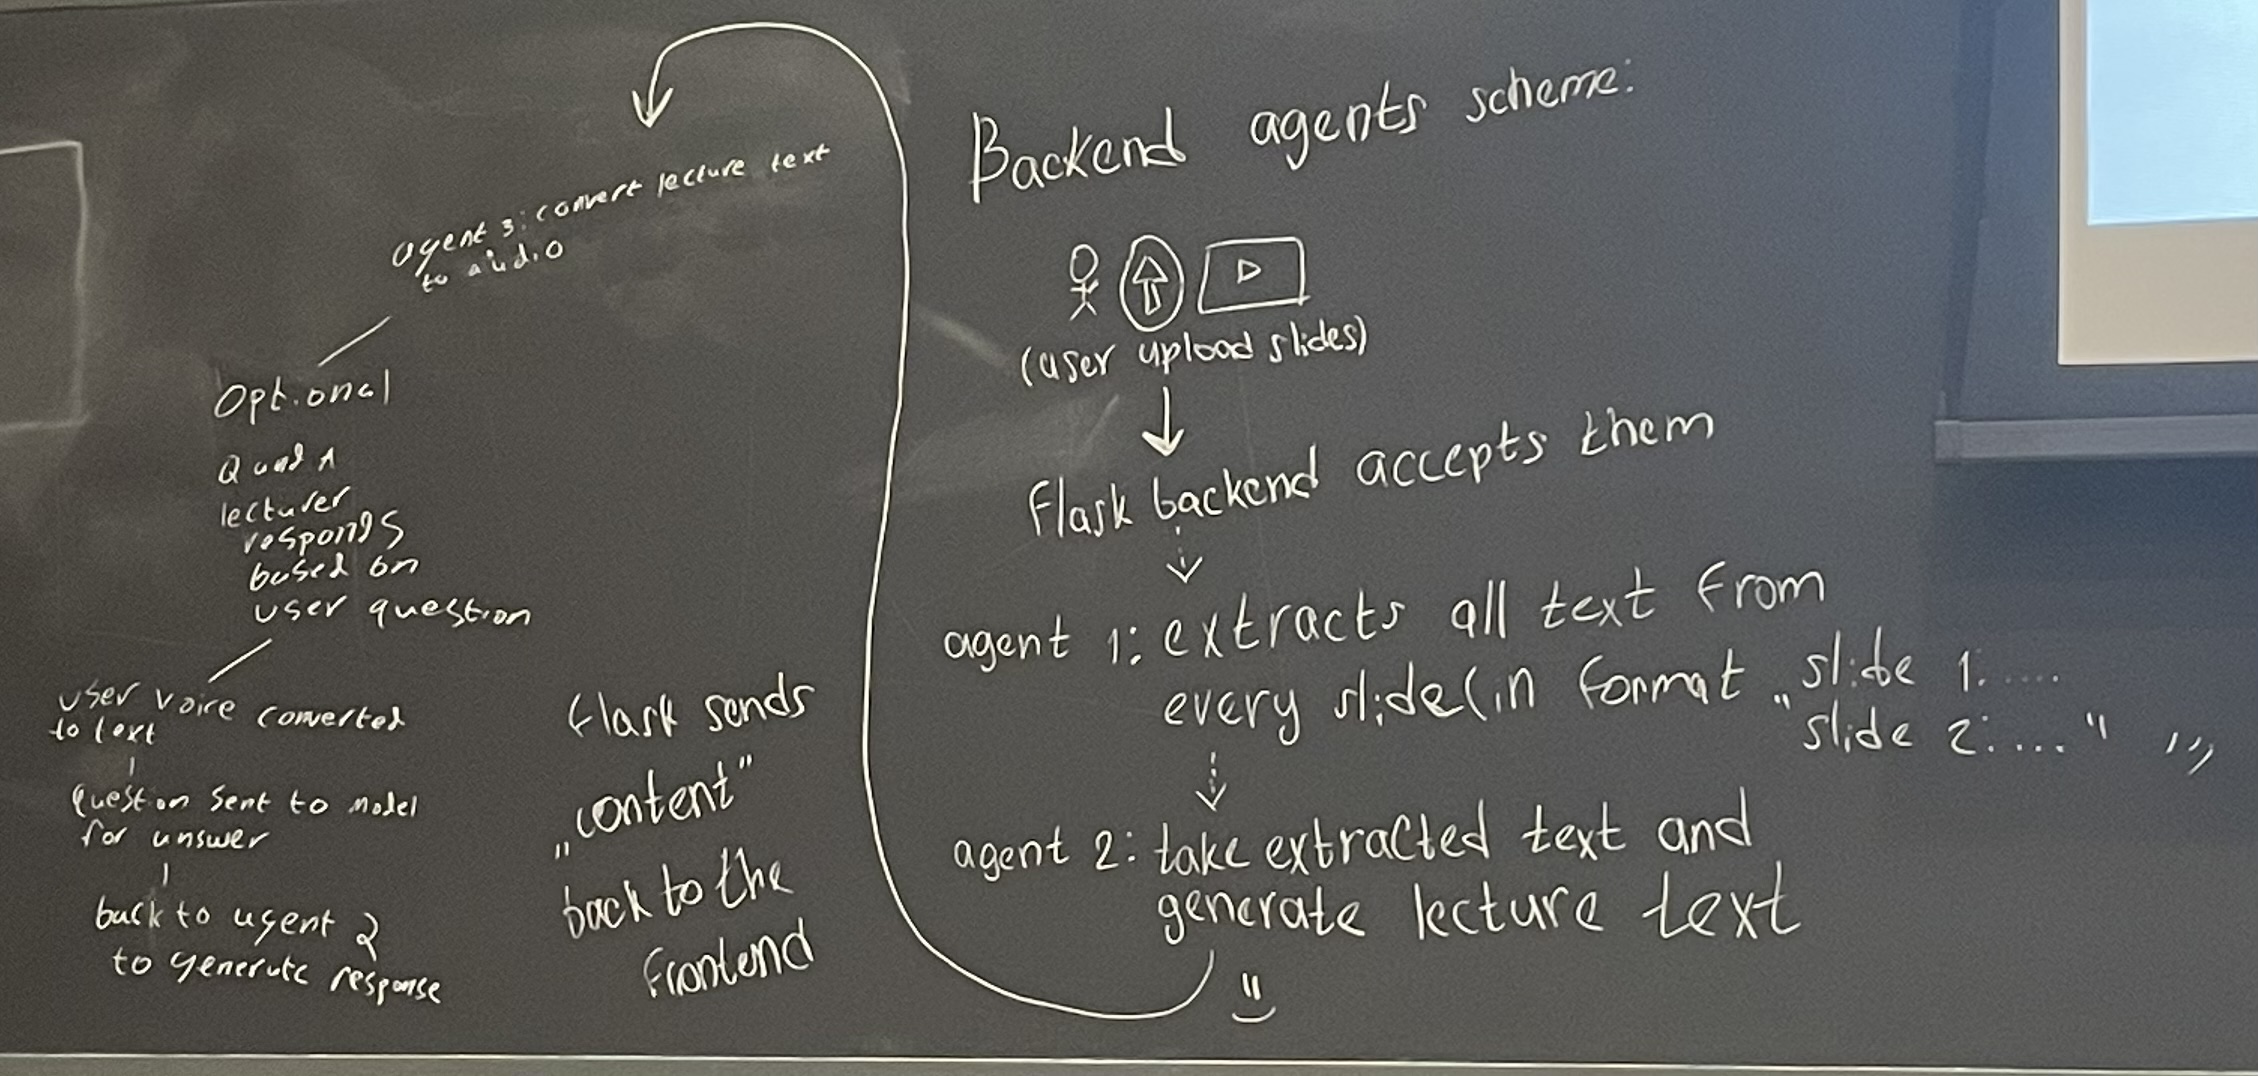 Backend agents scheme:
(user upload slides)
Flask backend accepts them
agent 1: extracts all text from
every slide (in format „slide 1:.....
slide 2:...." ,,,
agent 2: take extracted text and
generate lecture text
agent 3: convert lecture text
to audio
Optional
Q and A
lecturer
responds
based on
user question
user voice converted
to text
question sent to model
for answer
back to agent 2
to generate response
flask sends
„content"
back to the
frontend